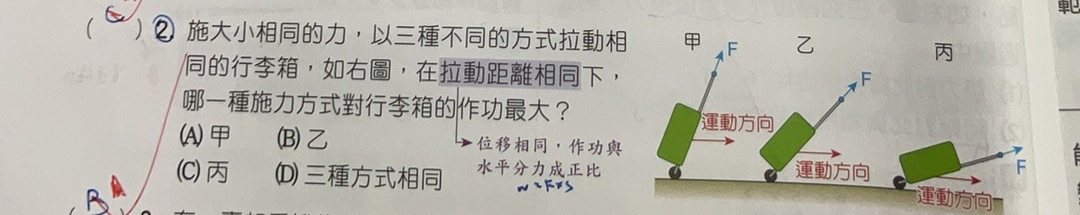 (C) ② 施大小相同的力，以三種不同的方式拉動相
同的行李箱，如右圖，在拉動距離相同下，
哪一種施力方式對行李箱的作功最大？
(A) 甲 (B) 乙
(C) 丙 (D) 三種方式相同
位移相同，作功與
水平分力成正比
W=F×S
甲 F 運動方向
乙 F 運動方向
丙 F 運動方向
B A